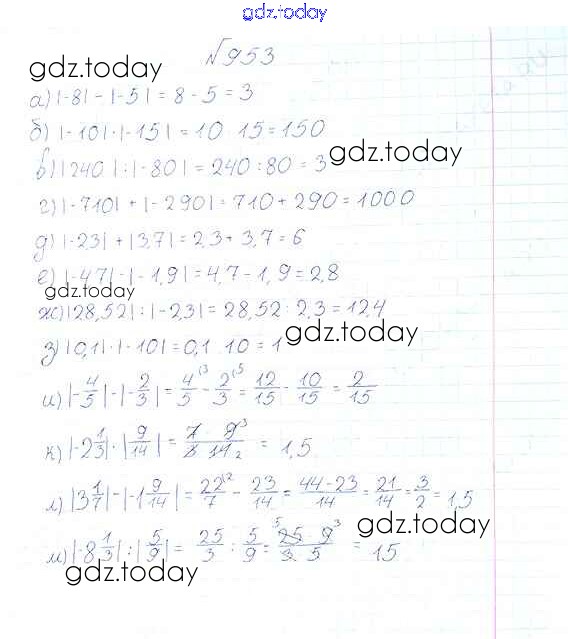 gdz.today
№953
gdz.today
а) |-8| - |-5| = 8 - 5 = 3
б) |-10| · |-15| = 10 · 15 = 150
в) |240| : |-80| = 240 : 80 = 3
gdz.today
г) |-710| + |-290| = 710 + 290 = 1000
д) |-2,3| + |3,7| = 2,3 + 3,7 = 6
е) |-4,7| - |-1,9| = 4,7 - 1,9 = 2,8
gdz.today
ж) |28,52| : |-2,3| = 28,52 : 2,3 = 12,4
gdz.today
з) |0,1| · |-10| = 0,1 · 10 = 1
и) |-4/5| - |-2/3| = 4/5 ⁽³ - 2/3 ⁽⁵ = 12/15 - 10/15 = 2/15
к) |-2 1/3| · |9/14| = 7 · 9 ³/3 · 14 ₂ = 1,5
л) |3 1/7| - |-1 9/14| = 22/7 ⁽² - 23/14 = 44-23/14 = 21/14 = 3/2 = 1,5
gdz.today
м) |-8 1/3| : |5/9| = 25/3 : 5/9 = ⁵ 25 · 9 ³/3 · 5 = 15
gdz.today